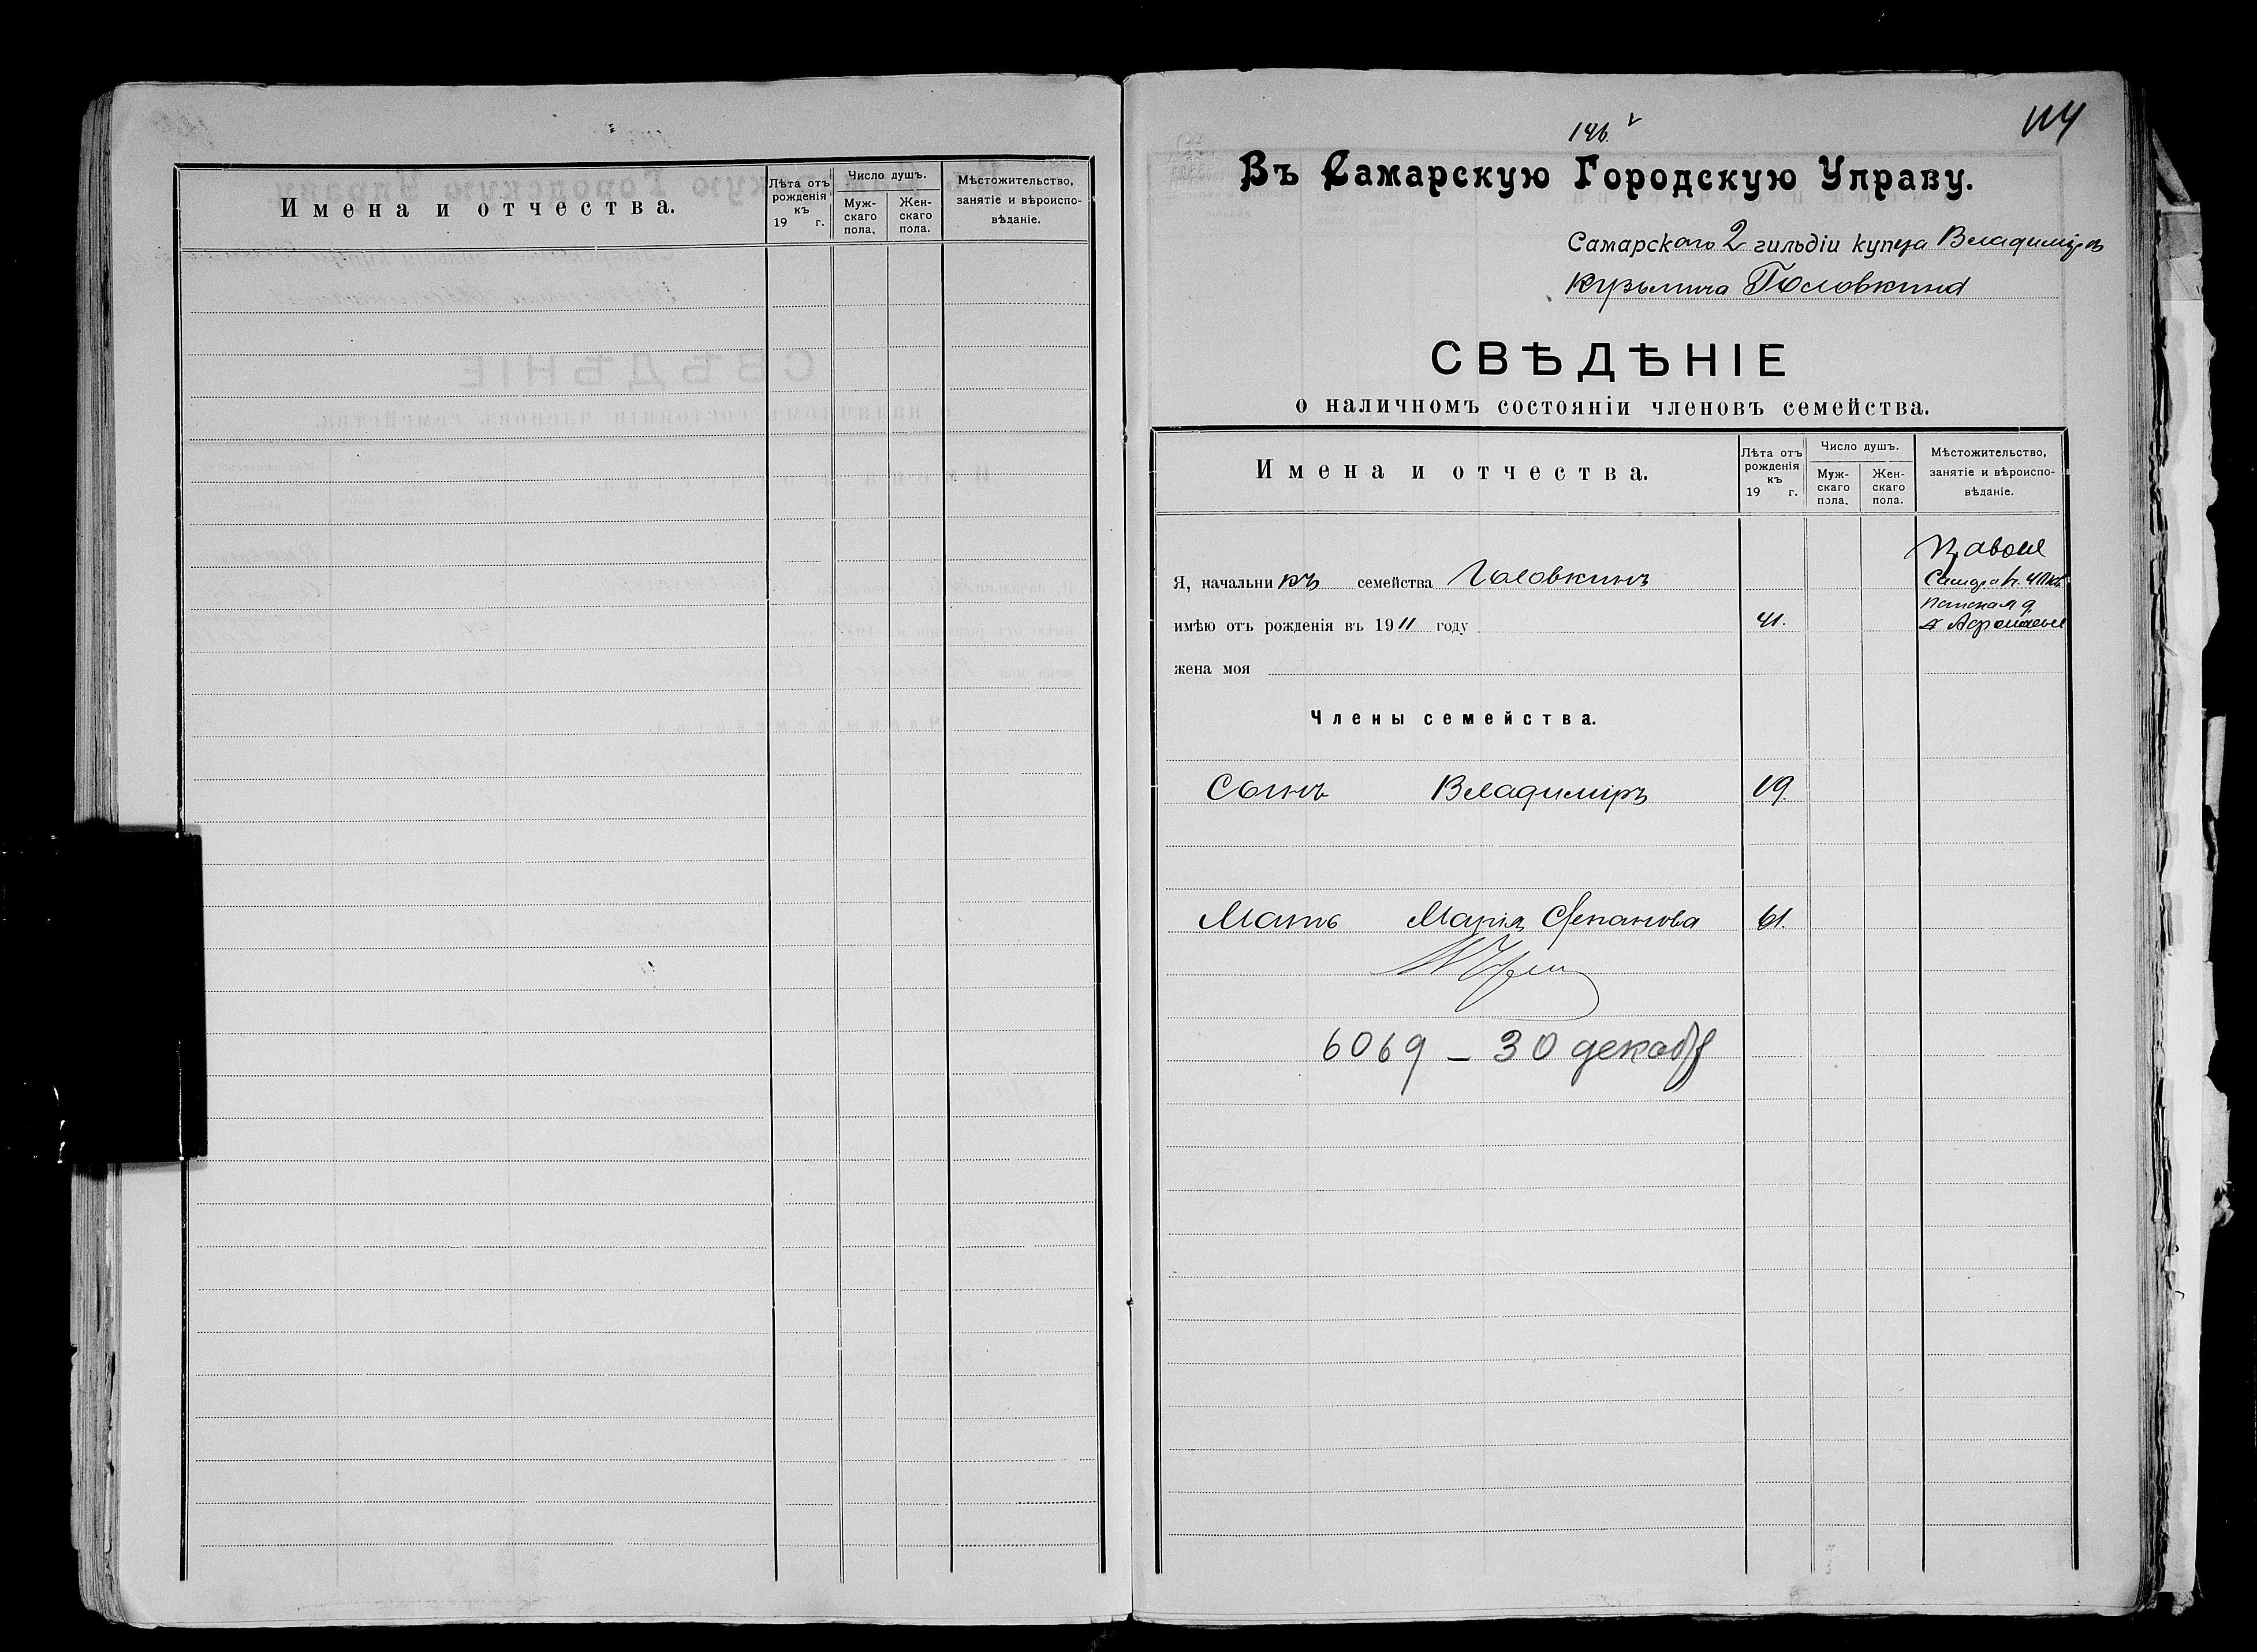 Имена и отчества.
Лѣта отъ рожденія къ 19 г.
Число душъ.
Муж-скаго пола.
Жен-скаго пола.
Мѣстожительство, занятіе и вѣроиспо-вѣданіе.
146
114
Въ Самарскую Городскую Управу.
Самарскаго 2 гильдіи купца Владиміра
Кузьмича Головкина
СВѢДѢНІЕ
о наличномъ состояніи членовъ семейства.
Имена и отчества.
Лѣта отъ рожденія къ 19 г.
Число душъ.
Муж-скаго пола.
Жен-скаго пола.
Мѣстожительство, занятіе и вѣроиспо-вѣданіе.
Правосл
Я, начальникъ семейства Головкинъ
имѣю отъ рожденія въ 1911 году 41.
жена моя
Члены семейства.
Сынъ Владиміръ 19.
Мать Марія Степанова 61.
6069 – 30 декабр